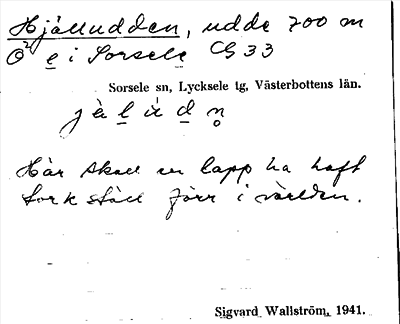 Hjälludden, udde 700 m
O² e i Sorsele Cg 33
Sorsele sn, Lycksele tg, Västerbottens län.
Här skall en lapp ha haft
torkställ förr i världen.
Sigvard Wallström, 1941.